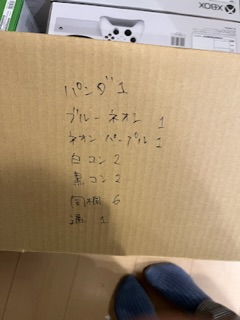 XBOX
パンダ 1
ブルーネオン 1
ネオンパープル 1
白コン 2
黒コン 2
同梱 6
1